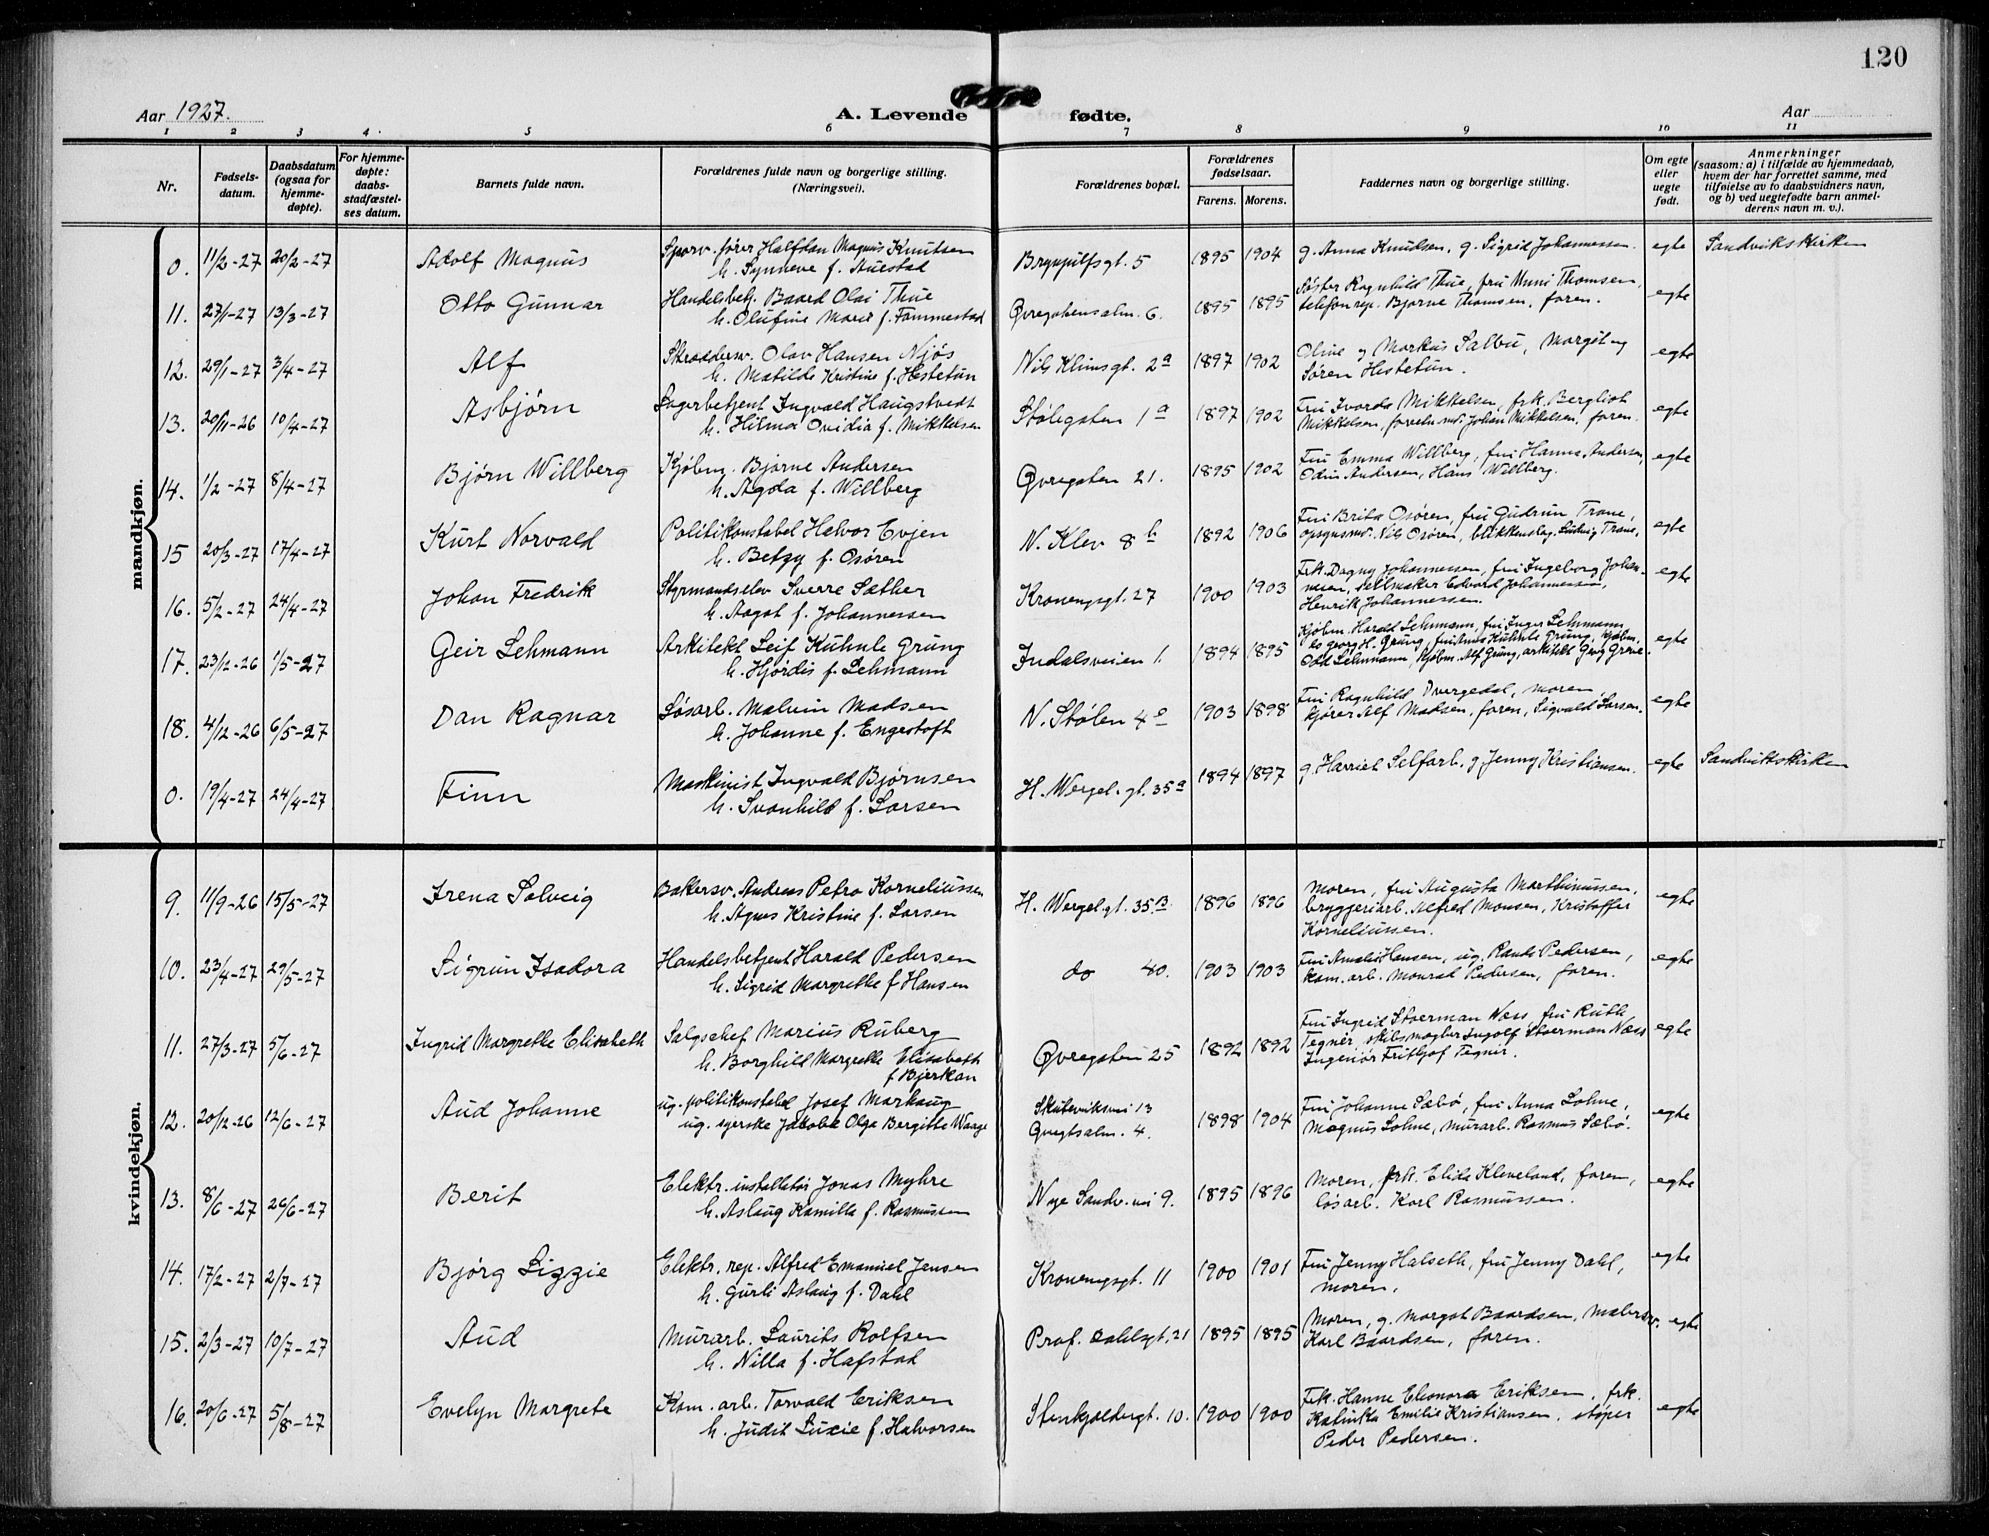 120
Aar 1927.
A. Levende fødte.
Aar
1 2 3 4 5 6 7 8 9 10 11
Nr.
Fødsels-datum.
Daabsdatum (ogsaa for hjemme-døpte).
For hjemme-døpte: daabs-stadfæstel-ses datum.
Barnets fulde navn.
Forældrenes fulde navn og borgerlige stilling. (Næringsvei).
Forældrenes bopæl.
Forældrenes fødselsaar.
Farens. Morens.
Faddernes navn og borgerlige stilling.
Om egte eller uegte født.
Anmerkninger
(saasom: a) i tilfælde av hjemmedaab,
hvem der har forrettet samme, med
tilføielse av to daabsvidners navn,
og b) ved uegtefødte barn anmel-
derens navn m. v.).
mandkjøn.
0. 11/2-27 20/2-27 Adolf Magnus
Sporv. fører Halfdan Magnus Knutsen
h. Synneve f. Auestad
1895 1904
g. Anna Knudsen, g. Sigrid Johannessen.
egte Sandvikskirken
11. 27/1-27 13/3-27 Otto Gunnar
Handelsbetj. Baard Olai Thue
h. Olufine Marie f. Fammestad
Øvregatensalm. 6.
1895 1895
Søster Ragnhild Thue, fru Unni Thomsen,
telefonrep. Bjarne Thomsen, faren.
egte
12. 29/1-27 3/4-27 Alf
Skræddersv. Olav Hansen Njøs
h. Matilde Kristine f. Hestetun
Nils Klimsgt. 2a
1897 1902
Oline og Markus Salbu, Margit og
Søren Hestetun.
egte
13. 20/11-26 10/4-27 Asbjørn
Lagerbetjent Ingvald Haugstvedt
h. Hilma Ovidia f. Mikkelsen
Stølegaten 1a
1897 1902
Fru Ivarda Mikkelsen, frk. Bergliot
Mikkelsen, Johan Mikkelsen, faren.
egte
14. 1/2-27 8/4-27 Bjørn Willberg
Kjøbm. Bjarne Andersen
h. Agda f. Willberg
Øvregaten 21.
1895 1902
Fru Emma Willberg, fru Hanna Andersen,
Odin Andersen, Hans Willberg.
egte
15 20/3-27 17/4-27 Kurt Norvald
Politikonstabel Halvor Evjen
h. Betzy f. Osøren
N. Klev 8b
1892 1906
Fru Brita Osøren, fru Gudrun Trane,
opsynsmd. Nils Osøren, blikkenslag. Ludvig Trane.
egte
16. 5/2-27 24/4-27 Johan Fredrik
Styrmandselev Sverre Sæther
h. Aagot f. Johannessen
Kronengsgt. 27
1900 1903
Frk. Dagny Johannessen, fru Ingeborg Johan-
nesen, seilmaker Edvard Johannessen,
Henrik Johannessen.
egte
17. 23/12-26 1/5-27 Geir Lehmann
Arkitekt Leif Kuhnle Grung
h. Hjørdis f. Lehmann
Indalsveien 1.
1894 1895
Kjøbm. Harald Lehmann, fru Inger Lehmann
Georg H. Grung, fru Anna Kuhnle Grung, kjøbm.
Odd Lehmann, kjøbm. Alf Grung, arkitekt Georg Greve.
egte
18. 4/12-26 6/5-27 Dan Ragnar
Løsarb. Malvin Madsen
h. Johanne f. Engestoft
N. Stølen 4e
1903 1898
Fru Ragnhild Dvergedal, moren
kjører Alf Madsen, faren, Sigvald Larsen.
egte
0. 19/4-27 24/4-27 Finn
Maskinist Ingvald Bjørnsen
h. Svanhild f. Larsen
H. Wergel. gt. 35a
1894 1897
g. Harriet Selfarb. g Jenny Kristiansen.
egte Sandvikskirken
kvindekjøn.
9. 11/9-26 15/5-27 Irena Solveig
Bakersv. Andreas Petro Korneliussen
h. Agnes Kristine f. Larsen
H. Wergel. gt. 35B.
1896 1896
Moren, fru Augusta Marthinussen,
bryggeriarb. Alfred Monsen, Kristoffer
Korneliussen.
egte
10. 23/4-27 29/5-27 Sigrun Isadora
Handelsbetjent Harald Pedersen
h. Sigrid Margrethe f Hansen
do 40.
1903 1903
Fru Amalie Hansen, ug. Randi Pedersen,
kom. arb. Monrad Pedersen, faren.
egte
11. 27/3-27 5/6-27 Ingrid Margrethe Elisabeth
Salgschef Marius Ruberg
h. Borghild Margrethe Elisabeth
f Bjerkan
Øvregaten 25
1892 1892
Fru Ingrid Stoerman Næss, fru Ruth
Tegnér, skibsmegler Ingolf Stoerman Næss
Ingeniør Frithjof Tegnér.
egte
12. 20/12-26 12/6-27 Aud Johanne
ug. politikonstabel Josef Markaug
ug. syerske Jakobea Olga Bergitte Waage
Skuteviksvei 13
Øvrgtsalm. 4.
1898 1904
Fru Johanne Sæbø, fru Anna Lohne,
Magnus Lohne, murarb. Rasmus Sæbø.
egte
13. 8/6-27 26/6-27 Berit
Elektr. installatør Jonas Myhre
h. Aslaug Kamilla f. Rasmussen
Nye Sandv. vei 9.
1895 1896
Moren, frk. Elida Kleveland, faren,
løsarb. Karl Rasmussen.
egte
14. 17/2-27 2/7-27 Bjørg Lizzie
Elektr. rep. Alfred Emanuel Jensen
h. Gurli Aslaug f. Dahl
Kronengsgt. 11
1900 1901
Fru Jenny Halseth, fru Jenny Dahl,
moren.
egte
15. 2/3-27 10/7-27 Aud
Murarb. Laurits Rolfsen
h. Nilla f. Hafstad
Prof. Dahlsgt. 21
1895 1895
Moren, g. Margot Baardsen, malersv.
Karl Baardsen, faren.
egte
16. 20/6-27 5/8-27 Evelyn Margrete
Kom. arb. Torvald Eriksen
h. Judit Luzie f. Halvorsen
Stenkjeldergt. 10.
1900 1900
Frk. Hanne Eleonora Eriksen, frk.
Katinka Emilie Kristiansen, støper
Peder Pedersen.
egte